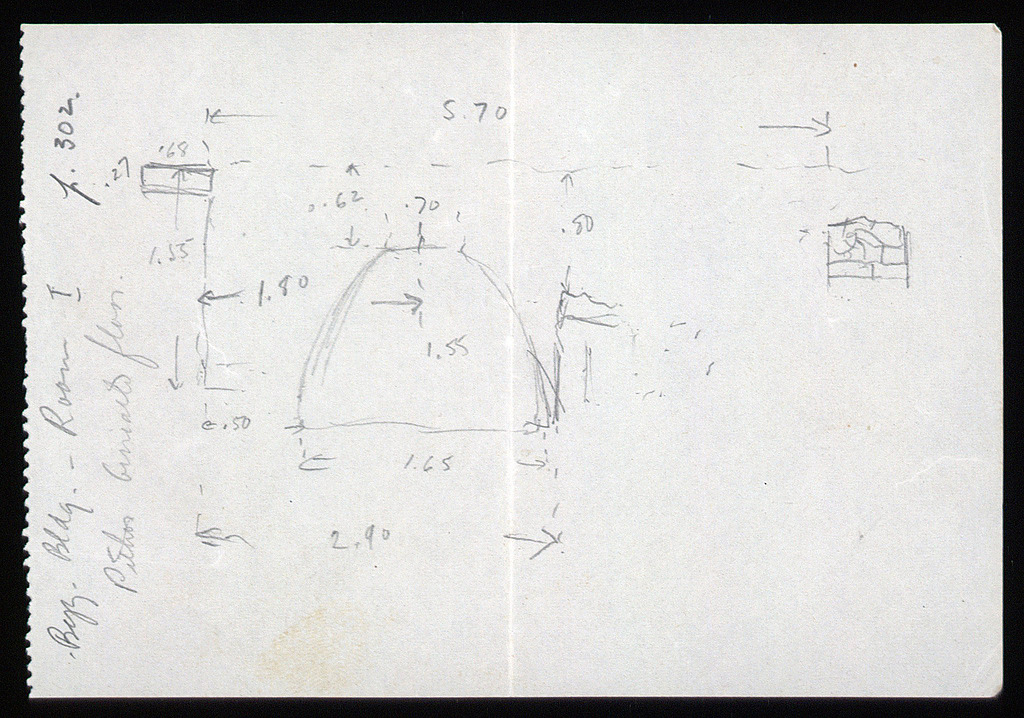 Byz. Bldg. - Room I p. 302.
Pithos beneath floor.
5.70
.68
.27
.62 .70
.80
1.55
1.80
1.55
.50
1.65
2.90